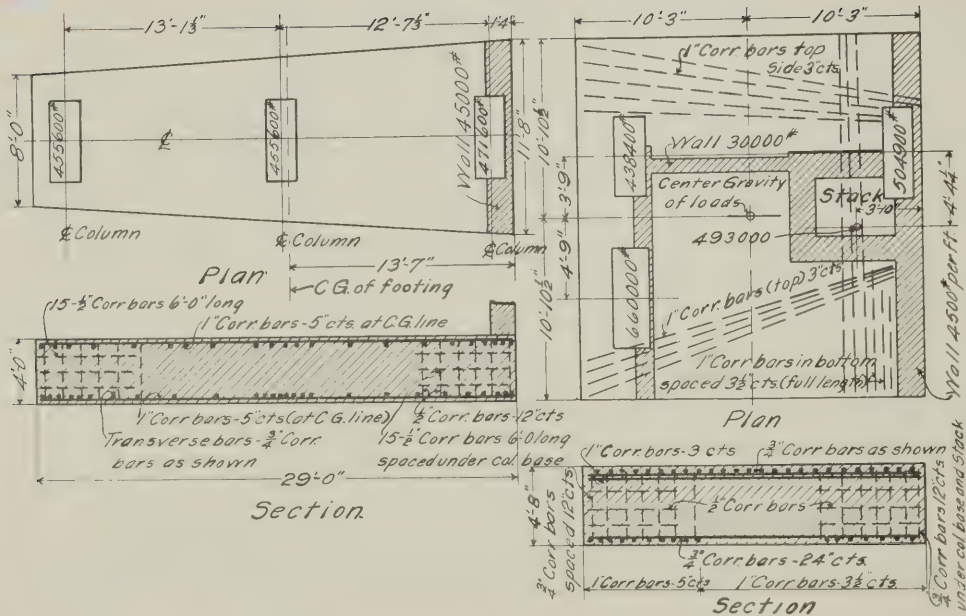 13'-1½"
12'-7½"
1'4"
8'-0"
455600#
455600#
471600#
Wall 45000#
11'-8"
℄
℄ Column
℄ Column
℄ Column
13'-7"
Plan
C.G. of footing
15-½" Corr bars 6'-0" long
1" Corr bars-5" cts. at C.G. line
4'-0"
1" Corr bars-5" cts (at C.G. line)
½" Corr. bars-12" cts
Transverse bars-¾" Corr.
bars as shown
15-½" Corr bars 6'-0 long
spaced under col. base
29'-0"
Section
10'-3"
10'-3"
1" Corr bars top
Side 3" cts.
10'-10½"
3'-9"
4'-9"
10'-10½"
438400#
Wall 30000#
Center Gravity
of loads
504900#
Stack
3'-10"
493000
660000#
1" Corr bars (top) 3" cts.
1" Corr bars in bottom
spaced 3½" cts. (full length)
Wall 4500# per ft.
4'-4¼"
Plan
1" Corr bars-3 cts
¾" Corr bars as shown
4'-8"
¾" Corr bars
spaced 12" cts
½" Corr bars
¾" Corr bars-24" cts.
1" Corr bars-5" cts
1" Corr bars-3½" cts.
¾" Corr bars 12" cts
under col base and Stack
Section